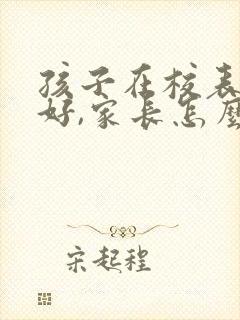 孩子在校表
好,家长怎麼
宋起程